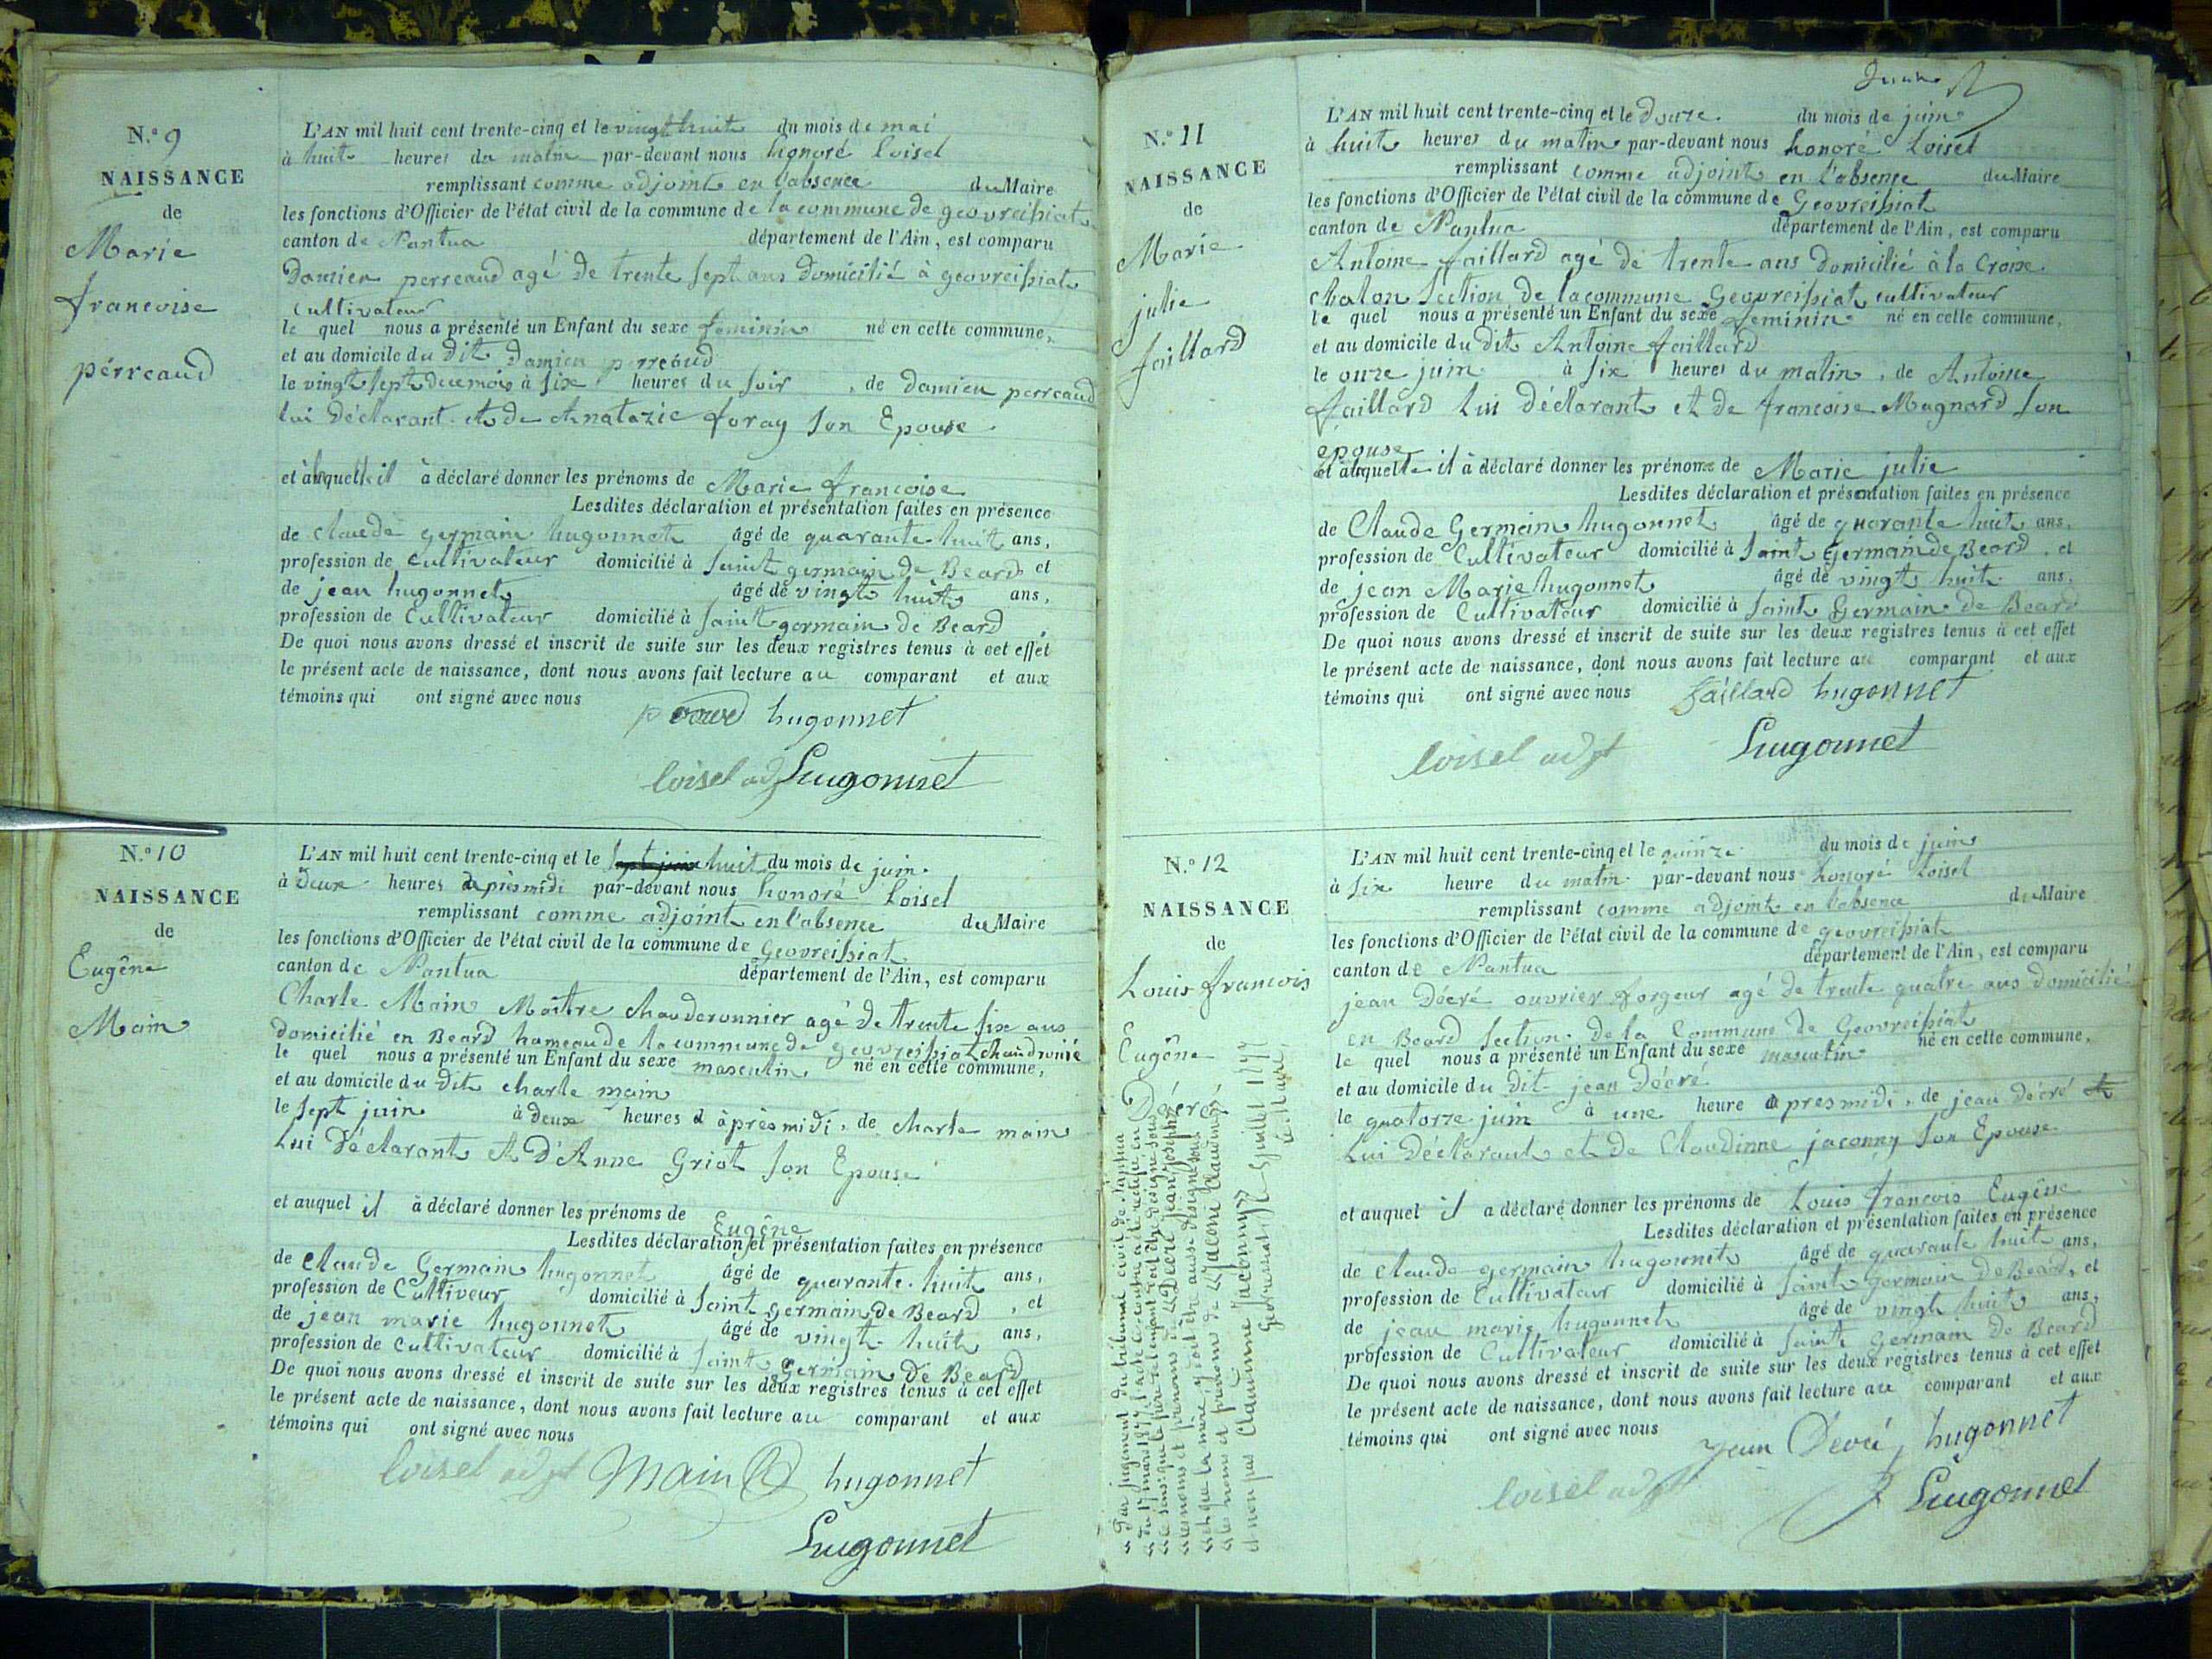 N.° 9
NAISSANCE
de
Marie
francoise
pérreaud
L'AN mil huit cent trente-cinq et le vingt huit du mois de mai
à huit heures du matin par-devant nous honoré loisel
remplissant comme adjoint en l'absence du Maire
les fonctions d'Officier de l'état civil de la commune de la commune de geovreissiat
canton de Nantua département de l'Ain, est comparu
Damien perreaud agé de trente sept ans domicilié à geovreissiat
cultivateur
le quel nous a présenté un Enfant du sexe feminin né en cette commune,
et au domicile du dit Damien perreaud
le vingt sept du mois à six heures du soir, de damien perreaud
lui déclarant et de Anatazie foray son Epouse
et à laquelle il à déclaré donner les prénoms de Marie francoise
Lesdites déclaration et présentation faites en présence
de claude germain hugonnet âgé de quarante huit ans,
profession de cultivateur domicilié à saint germain de Beard et
de jean hugonnet âgé de vingt huit ans,
profession de Cultivateur domicilié à saint germain de Beard
De quoi nous avons dressé et inscrit de suite sur les deux registres tenus à cet effet
le présent acte de naissance, dont nous avons fait lecture au comparant et aux
témoins qui ont signé avec nous
hugonnet
loisel adj hugonnet
N.° 10
NAISSANCE
de
Eugêne
Main
L'AN mil huit cent trente-cinq et le sept juin huit du mois de juin
à deux heures après midi par-devant nous honoré Loisel
remplissant comme adjoint en l'absence du Maire
les fonctions d'Officier de l'état civil de la commune de Geovreissiat
canton de Nantua département de l'Ain, est comparu
Charle Main Maître chauderonnier agé de trente six ans
domicilié en Beard hameau de la commune de geovreissiat
le quel nous a présenté un Enfant du sexe masculin né en cette commune,
et au domicile du dit charle main
le sept juin à deux heures d'après midi, de charle main
Lui déclarant et d'Anne Griot son Epouse
et auquel il à déclaré donner les prénoms de Eugêne
Lesdites déclaration et présentation faites en présence
de Claude Germain hugonnet âgé de quarante huit ans,
profession de Cultiveur domicilié à Saint germain de Beard, et
de jean marie hugonnet âgé de vingt huit ans,
profession de cultivateur domicilié à saint Germain de Beard
De quoi nous avons dressé et inscrit de suite sur les deux registres tenus à cet effet
le présent acte de naissance, dont nous avons fait lecture au comparant et aux
témoins qui ont signé avec nous
loisel adjt Main hugonnet
hugonnet
N.° 11
NAISSANCE
de
Marie
julie
faillard
L'AN mil huit cent trente-cinq et le douze du mois de juin
à huit heures du matin par-devant nous honoré Loisel
remplissant comme adjoint en l'absence du Maire
les fonctions d'Officier de l'état civil de la commune de Geovreissiat
canton de Nantua département de l'Ain, est comparu
Antoine faillard agé de trente ans domicilié à la Croix
chalon section de la commune Geovreissiat cultivateur
le quel nous a présenté un Enfant du sexe feminin né en cette commune,
et au domicile du dit Antoine faillard
le onze juin à six heures du matin, de Antoine
faillard Lui déclarant et de francoise Magnard son
epouse
et àlaquelle il à déclaré donner les prénoms de Marie julie
Lesdites déclaration et présentation faites en présence
de Claude Germain hugonnet âgé de quarante huit ans,
profession de Cultivateur domicilié à Saint Germain de Beard, et
de jean Marie hugonnet âgé de vingt huit ans,
profession de Cultivateur domicilié à saint Germain de Beard
De quoi nous avons dressé et inscrit de suite sur les deux registres tenus à cet effet
le présent acte de naissance, dont nous avons fait lecture au comparant et aux
témoins qui ont signé avec nous faillard hugonnet
loisel adjt hugonnet
N.° 12
NAISSANCE
de
Louis francois
Eugêne
Décré
« Par jugement du tribunal civil de Nantua
« du 17 mars 1877 l'acte ci-contre a été rectifié en
« ce sens que le père de l'enfant doit être désigné sous
« les noms et prénoms de « Décré Jean Joseph »
« et que la mère y doit être aussi désignée sous
« les noms et prénoms de « Jaconi Claudine »
et non pas Claudinne Jaconny
Geovreissiat, 5 juillet 1877
Le Maire,
L'AN mil huit cent trente-cinq et le quinze du mois de juin
à six heure du matin par-devant nous honoré Loisel
remplissant comme adjoint en l'absence du Maire
les fonctions d'Officier de l'état civil de la commune de geovreissiat
canton de Nantua département de l'Ain, est comparu
jean Décré ouvrier forgeur agé de trente quatre ans domicilié
en Beard section de la Commune de Geovreissiat
le quel nous a présenté un Enfant du sexe masculin né en cette commune,
et au domicile du dit jean Décré
le quatorze juin à une heure après midi, de jean décré et
Lui Déclarant et de Claudinne jaconny son Epouse
et auquel il a déclaré donner les prénoms de Louis francois Eugêne
Lesdites déclaration et présentation faites en présence
de claude germain hugonnet âgé de quarante huit ans,
profession de Cultivateur domicilié à saint germain de Beard, et
de jean marie hugonnet âgé de vingt huit ans,
profession de Cultivateur domicilié à saint Germain de Beard
De quoi nous avons dressé et inscrit de suite sur les deux registres tenus à cet effet
le présent acte de naissance, dont nous avons fait lecture au comparant et aux
témoins qui ont signé avec nous jean Decré hugonnet
loisel adjt hugonnet